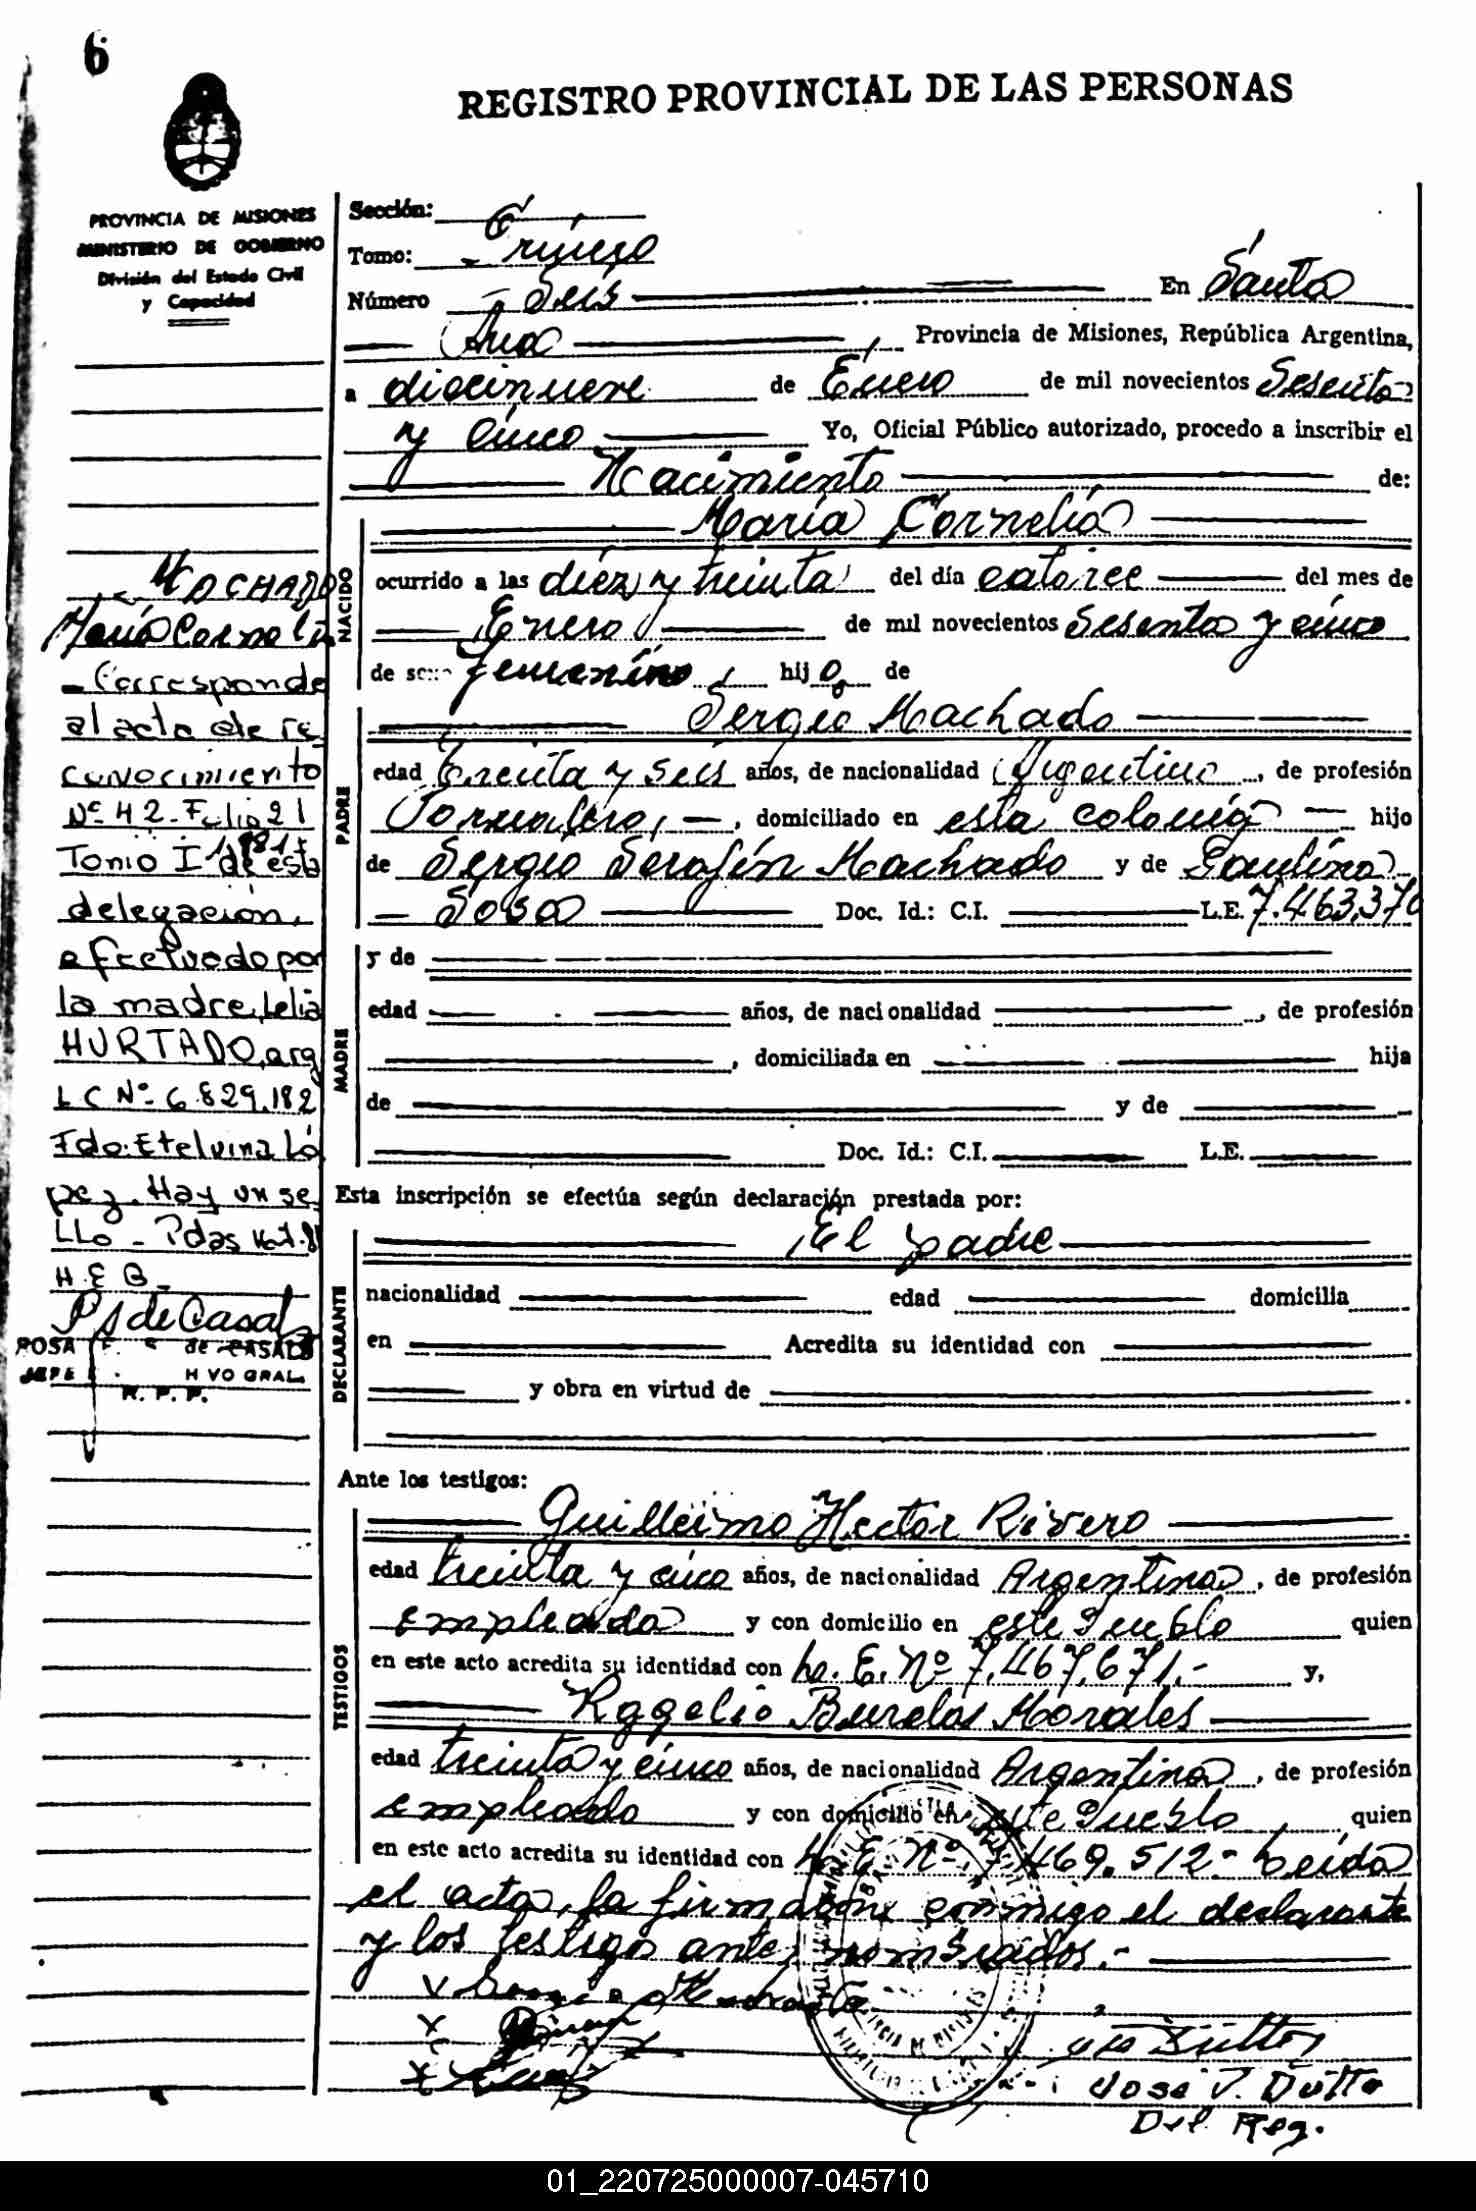 6
REGISTRO PROVINCIAL DE LAS PERSONAS
PROVINCIA DE MISIONES
MINISTERIO DE GOBIERNO
División del Estado Civil
y Capacidad
Sección:
Tomo: Primero
Número - Seis
En Santa
Ana Provincia de Misiones, República Argentina,
a diecinueve de Enero de mil novecientos Sesenta
y cinco Yo, Oficial Público autorizado, procedo a inscribir el
Nacimiento de:
María Cornelia
NACIDO
ocurrido a las diez y treinta del día catorce del mes de
Enero de mil novecientos Sesenta y cinco
de sexo femenino, hija de
PADRE
Sergio Machado
edad Treinta y seis años, de nacionalidad Argentino, de profesión
Jornalero, -, domiciliado en esta colonia hijo
de Sergio Serafín Machado y de Paulina
- Sosa Doc. Id.: C.I. L.E. 7.463.370
MADRE
y de
edad años, de nacionalidad , de profesión
, domiciliada en hija
de y de
Doc. Id.: C.I. L.E.
Esta inscripción se efectúa según declaración prestada por:
DECLARANTE
El padre
nacionalidad edad domicilia
en Acredita su identidad con
y obra en virtud de
Ante los testigos:
TESTIGOS
Guillermo Hector Rivero
edad treinta y cinco años, de nacionalidad Argentina, de profesión
empleado y con domicilio en este Pueblo quien
en este acto acredita su identidad con L. E. Nº 7.467.671.- y,
Rogelio Burelas Morales
edad treinta y cinco años, de nacionalidad Argentina, de profesión
empleado y con domicilio en este Pueblo, quien
en este acto acredita su identidad con L. E. Nº 7.469.512- Leída
el acta, la firmaron conmigo el declarante
y los testigos antes nombrados.-
José V. Dutto
Del. Reg.
MACHADO
María Cornelia
- Corresponde
al acta de re
conocimiento
Nº 42 - Folio 21
Tomo I 1981 de esta
delegación,
efectuado por
la madre, Lelia
HURTADO, arg
LC Nº 6.829.182
Fdo. Etelvina Ló
pez. Hay un se
LLo - Pdas
H.E.B.
ROSA E. S. de CASALS
JEFE VO GRAL.
R. P. P.
01_220725000007-045710